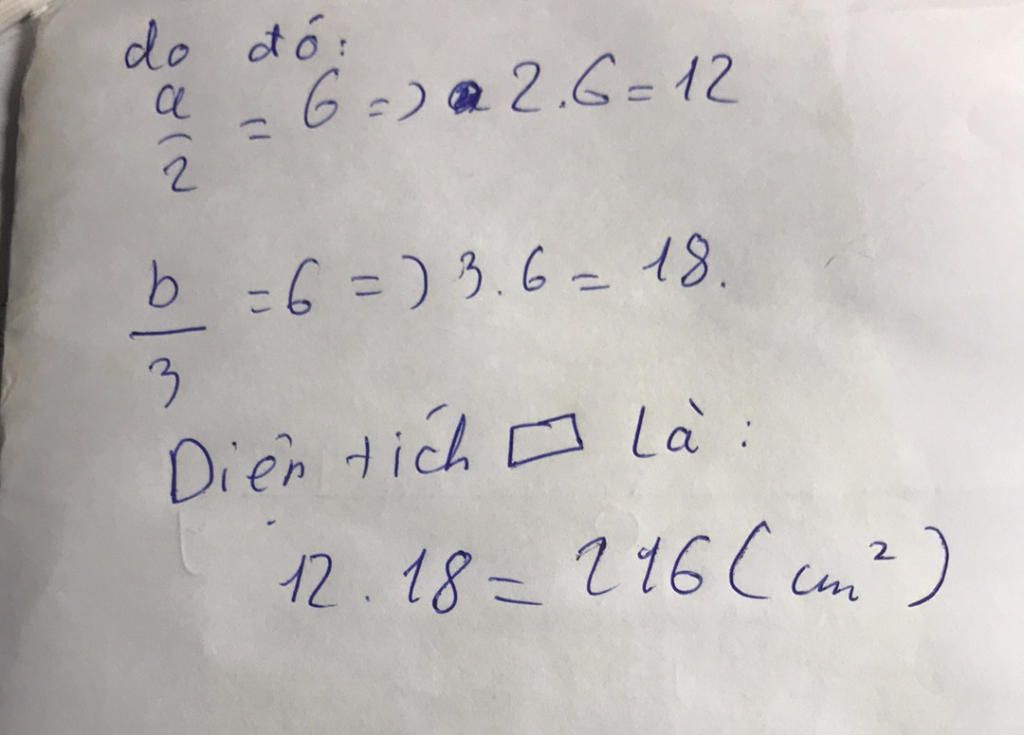 do đó:
a/2 = 6 => a 2.6 = 12
b/3 = 6 => 3.6 = 18.
Diện tích ▭ là:
12.18 = 216 (cm²)